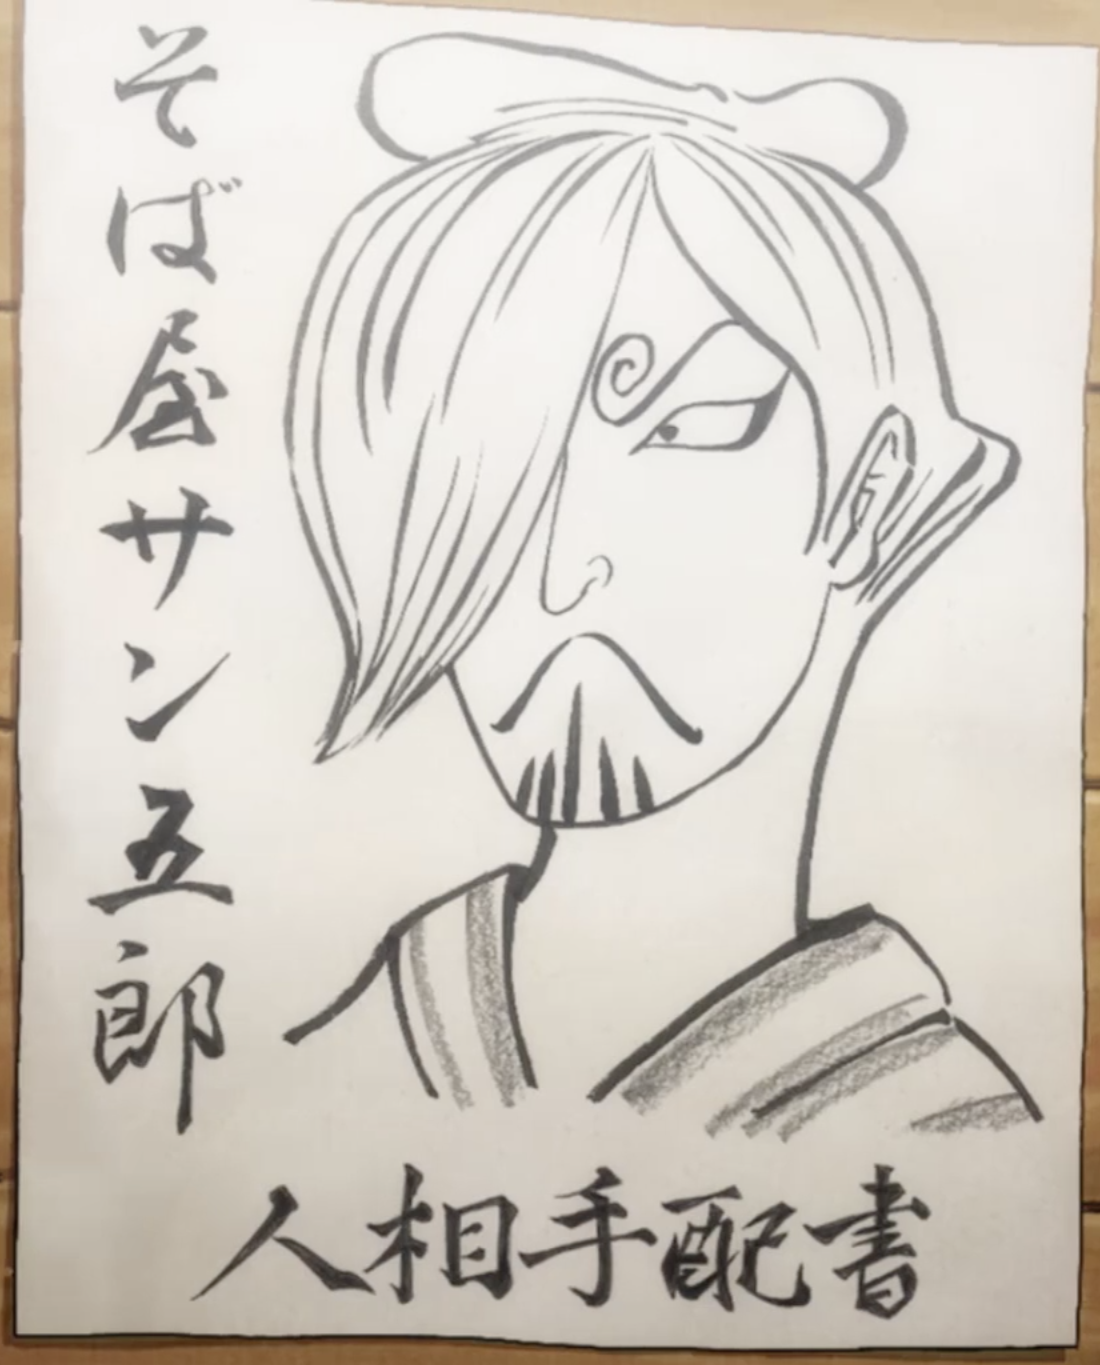 そば屋サン五郎
人相手配書